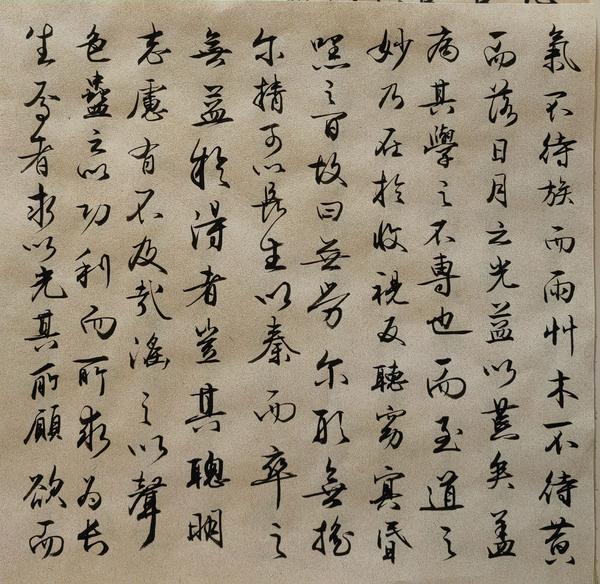 氣不待族而雨艸木不待黄
而落日月之光益以荒矣蓋
病其學之不專也而至道之
妙乃在於收視反聽窈冥昏
嘿之間故曰無勞尔形無摇
尔精可以長生以秦而卒之
無益於得者豈其聰明
志慮有不及哉滛之以聲
色蠱之以功利而所求為長
生焉者求以充其所願欲而